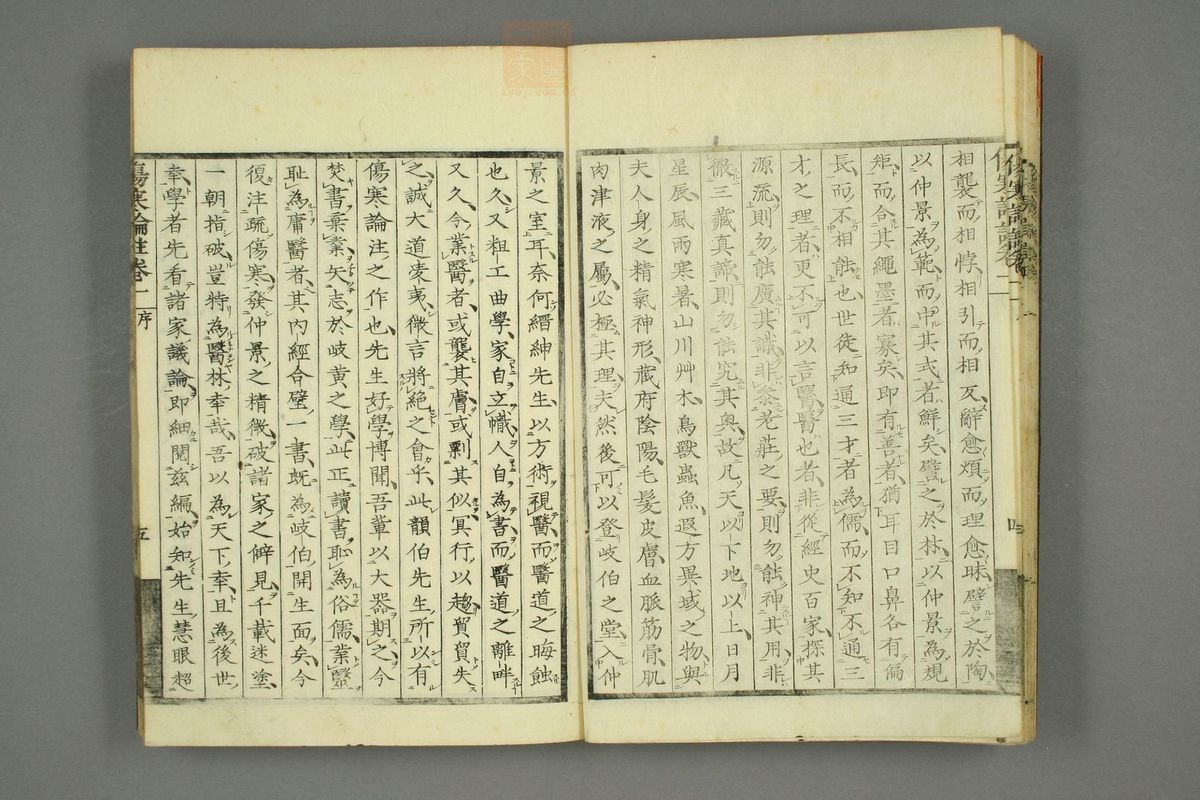 相襲而相悖相引而相反辭愈煩而理愈昧譬之於陶
以仲景為範而中其式者鮮矣譬之於林以仲景為規
矩而合其繩墨者寡矣即有善者猶耳目口鼻各有偏
長而不相蝕也世徒知通三才者為儒而不知不通三
才之理者更不可以言醫醫也者非從經史百家探其
源流則勿蝕廣其識非參老莊之要則勿蝕神其用非
徹三藏真諦則勿蝕究其奥故凡天以下地以上日月
星辰風雨寒暑山川艸木鳥獸蟲魚遐方異域之物與
夫人身之精氣神形藏府陰陽毛髮皮膚血脈筋骨肌
肉津液之屬必極其理夫然後可以登岐伯之堂入仲
景之室耳奈何縉紳先生以方術視醫而醫道之晦蝕
也久又粗工曲學家自立幟人自為書而醫道之離畔
又久今業醫者或襲其膚或剽其似冥行以趨貿貿失
之誠大道凌夷微言將絕之會乎此韻伯先生所以有
傷寒論注之作也先生好學博聞吾輩以大器期之今
焚書棄業矢志於岐黃之學此正讀書恥為俗儒業醫
恥為庸醫者其內經合璧一書既為岐伯開生面矣今
復注疏傷寒發仲景之精微破諸家之僻見千載迷塗
一朝指破豈特為醫林幸哉吾以為天下幸且為後世
幸學者先看諸家議論即細閱茲編始知先生慧眼超
傷寒論註卷一
序
五